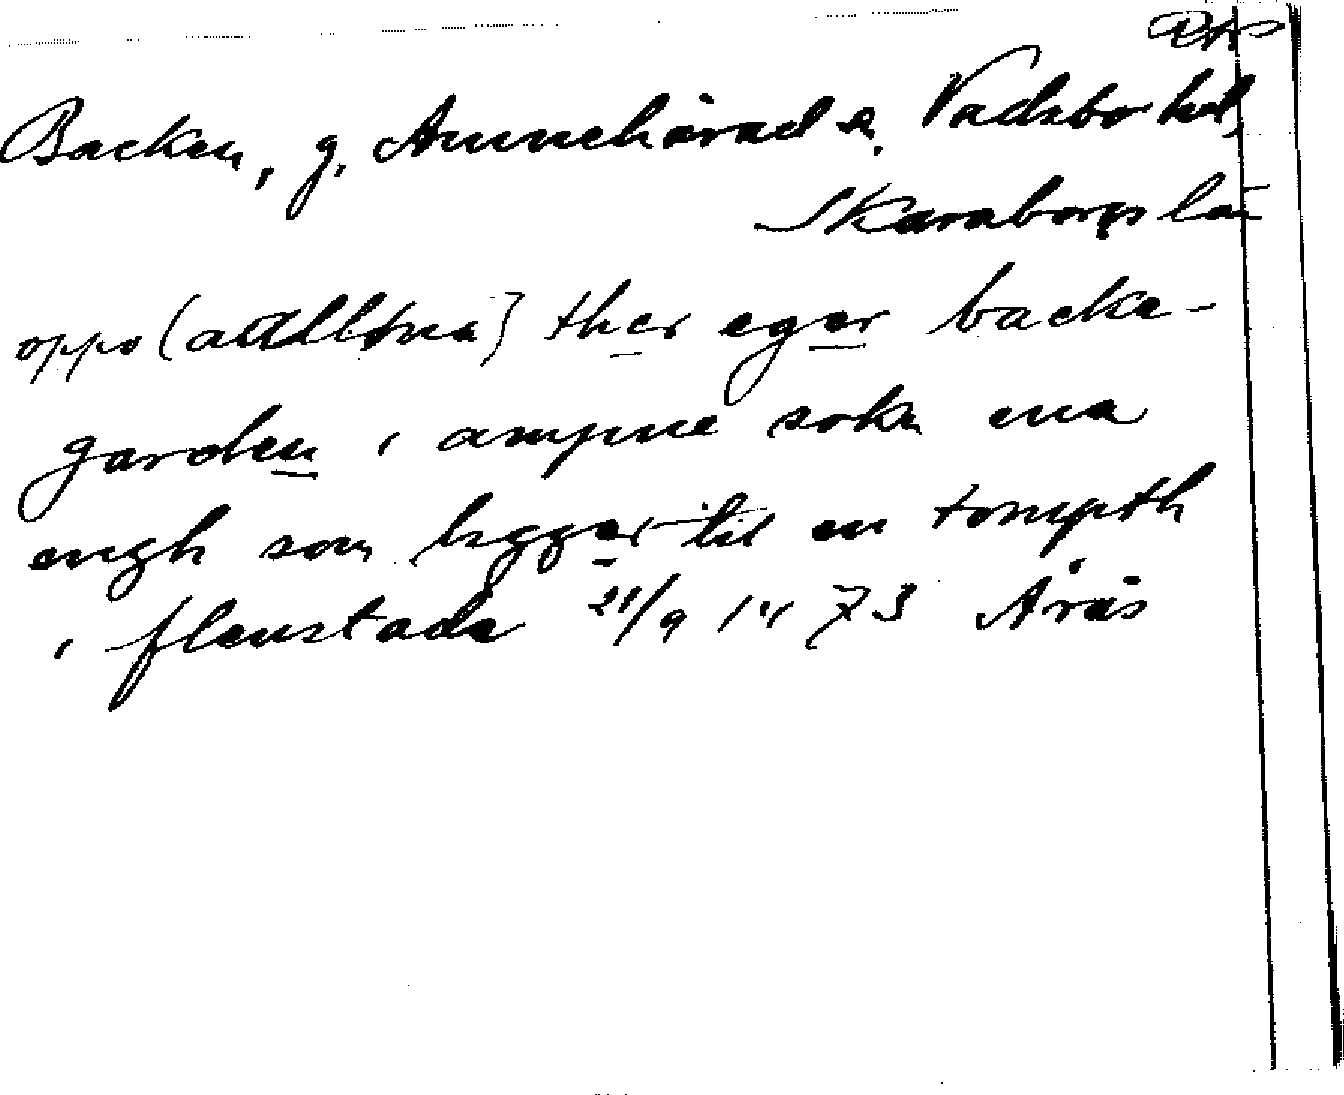 Backen, g. Amnehärad s. Vadsbo hd,
Skaraborgs län
oppo ther eger backe-
garden i ampne sokn ena
engh som ligger til en tompth
i flenstada 21/9 1473 Årås